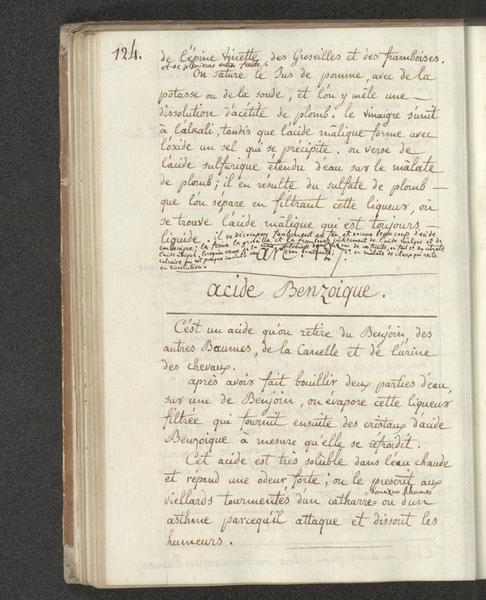 124.
de l'épine vinette, des Groseilles et des framboises.
et de plusieurs autres fruits.
On sature le Jus de pomme, avec de la
potasse ou de la soude, et l'on y mêle une
dissolution d'acétite de plomb. le vinaigre s'unit
à l'alkali, tandis que l'acide mâlique forme avec
l'oxide un sel qui se précipite. on verse de
l'acide sulfurique étendu d'eau sur le mâlate
de plomb; il en résulte du sulfate de plomb —
que l'on separe en filtrant cette liqueur, où
se trouve l'acide mâlique qui est toujours
liquide. il se décompose facilement au feu et donne beaucoup d'acide
carbonique;
en dissolution.
art. 27.
acide Benzoique.
C'est un acide qu'on retire du Benjoin, des
autres Baumes, de la Canelle et de l'urine
des chevaux.
après avoir fait bouillir deux parties d'eau,
sur une de Benjoin, on évapore cette liqueur
filtrée qui fournit ensuite des cristaux d'acide
Benzoique à mesure qu'elle se refroidit.
Cet acide est très soluble dans l'eau chaude
et répand une odeur forte; on le prescrit aux
vieillards tourmentés d'un catharre ou d'un
asthme parcequ'il attaque et dissout les
humeurs.